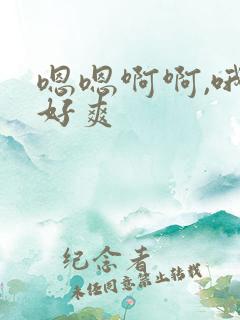 嗯嗯啊啊,哦
好爽
纪念者
未经同意禁止转载